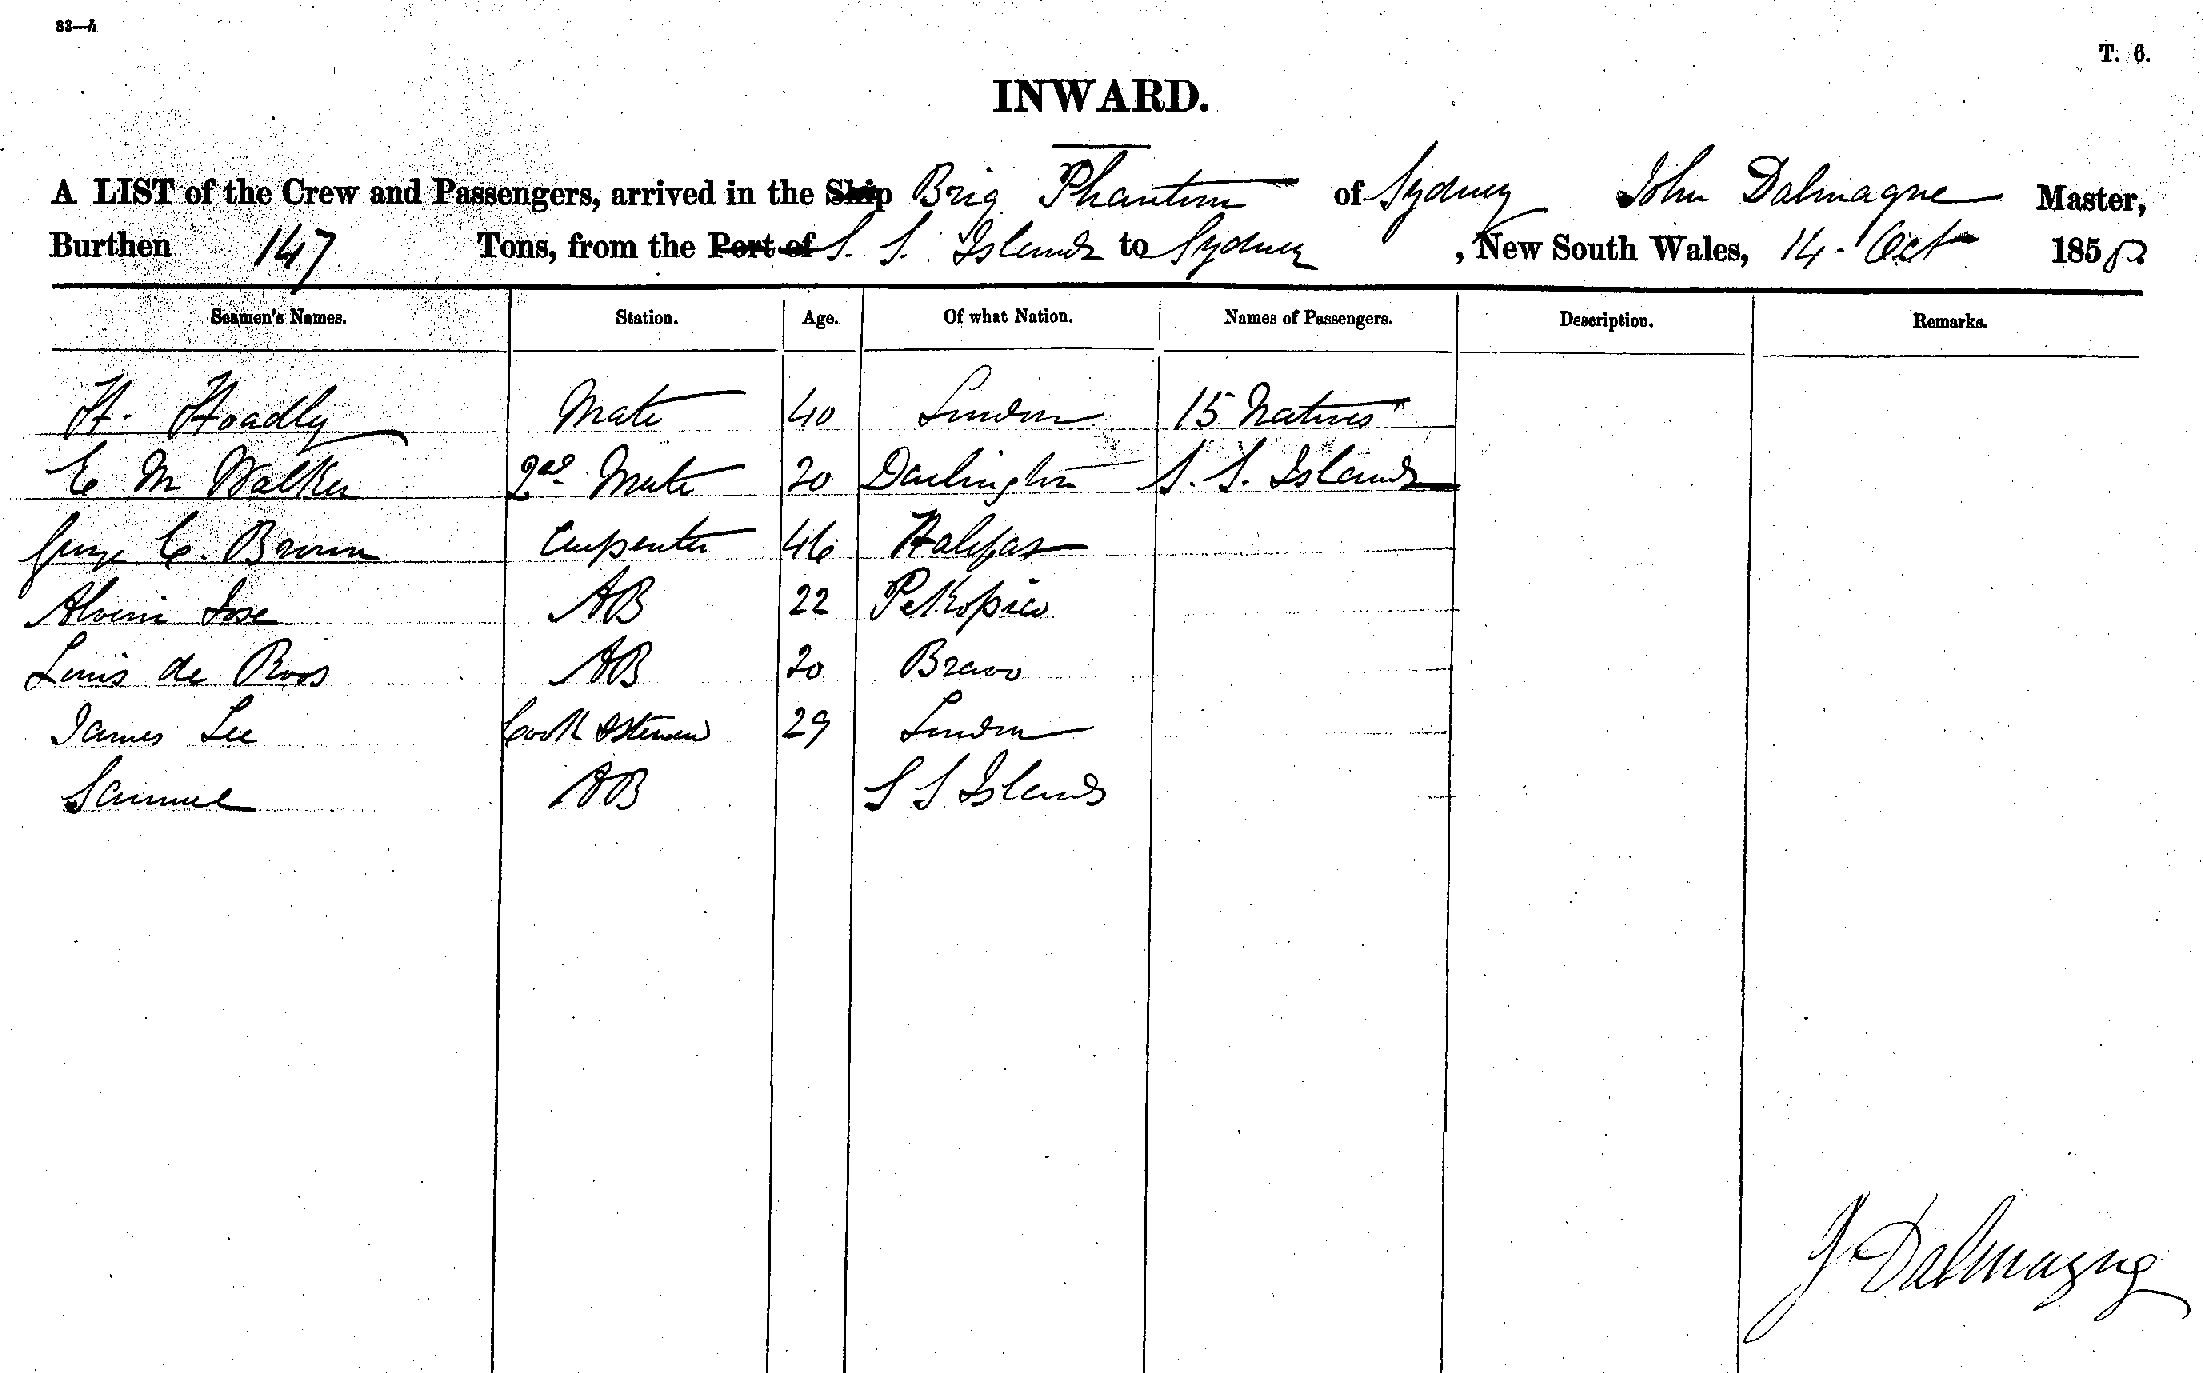 83—h
T. 6.
INWARD.
A LIST of the Crew and Passengers, arrived in the Ship Brig Phantom of Sydney John Dalmagne Master,
Burthen 147 Tons, from the Port of S. S. Islands to Sydney, New South Wales, 14 - Oct 185
Seamen's Names. Station. Age. Of what Nation. Names of Passengers. Description. Remarks.
H. Hoadly Mate 40 London 15 Natives
E M Walker 2nd Mate 20 Darlington S. S. Islands
George C. Brown Carpenter 46 Halifax
Jose AB 22
Louis de Roos AB 20 Bravo
James Lee Cook & Steward 29 London
Samuel AB S S Islands
J Dalmagne